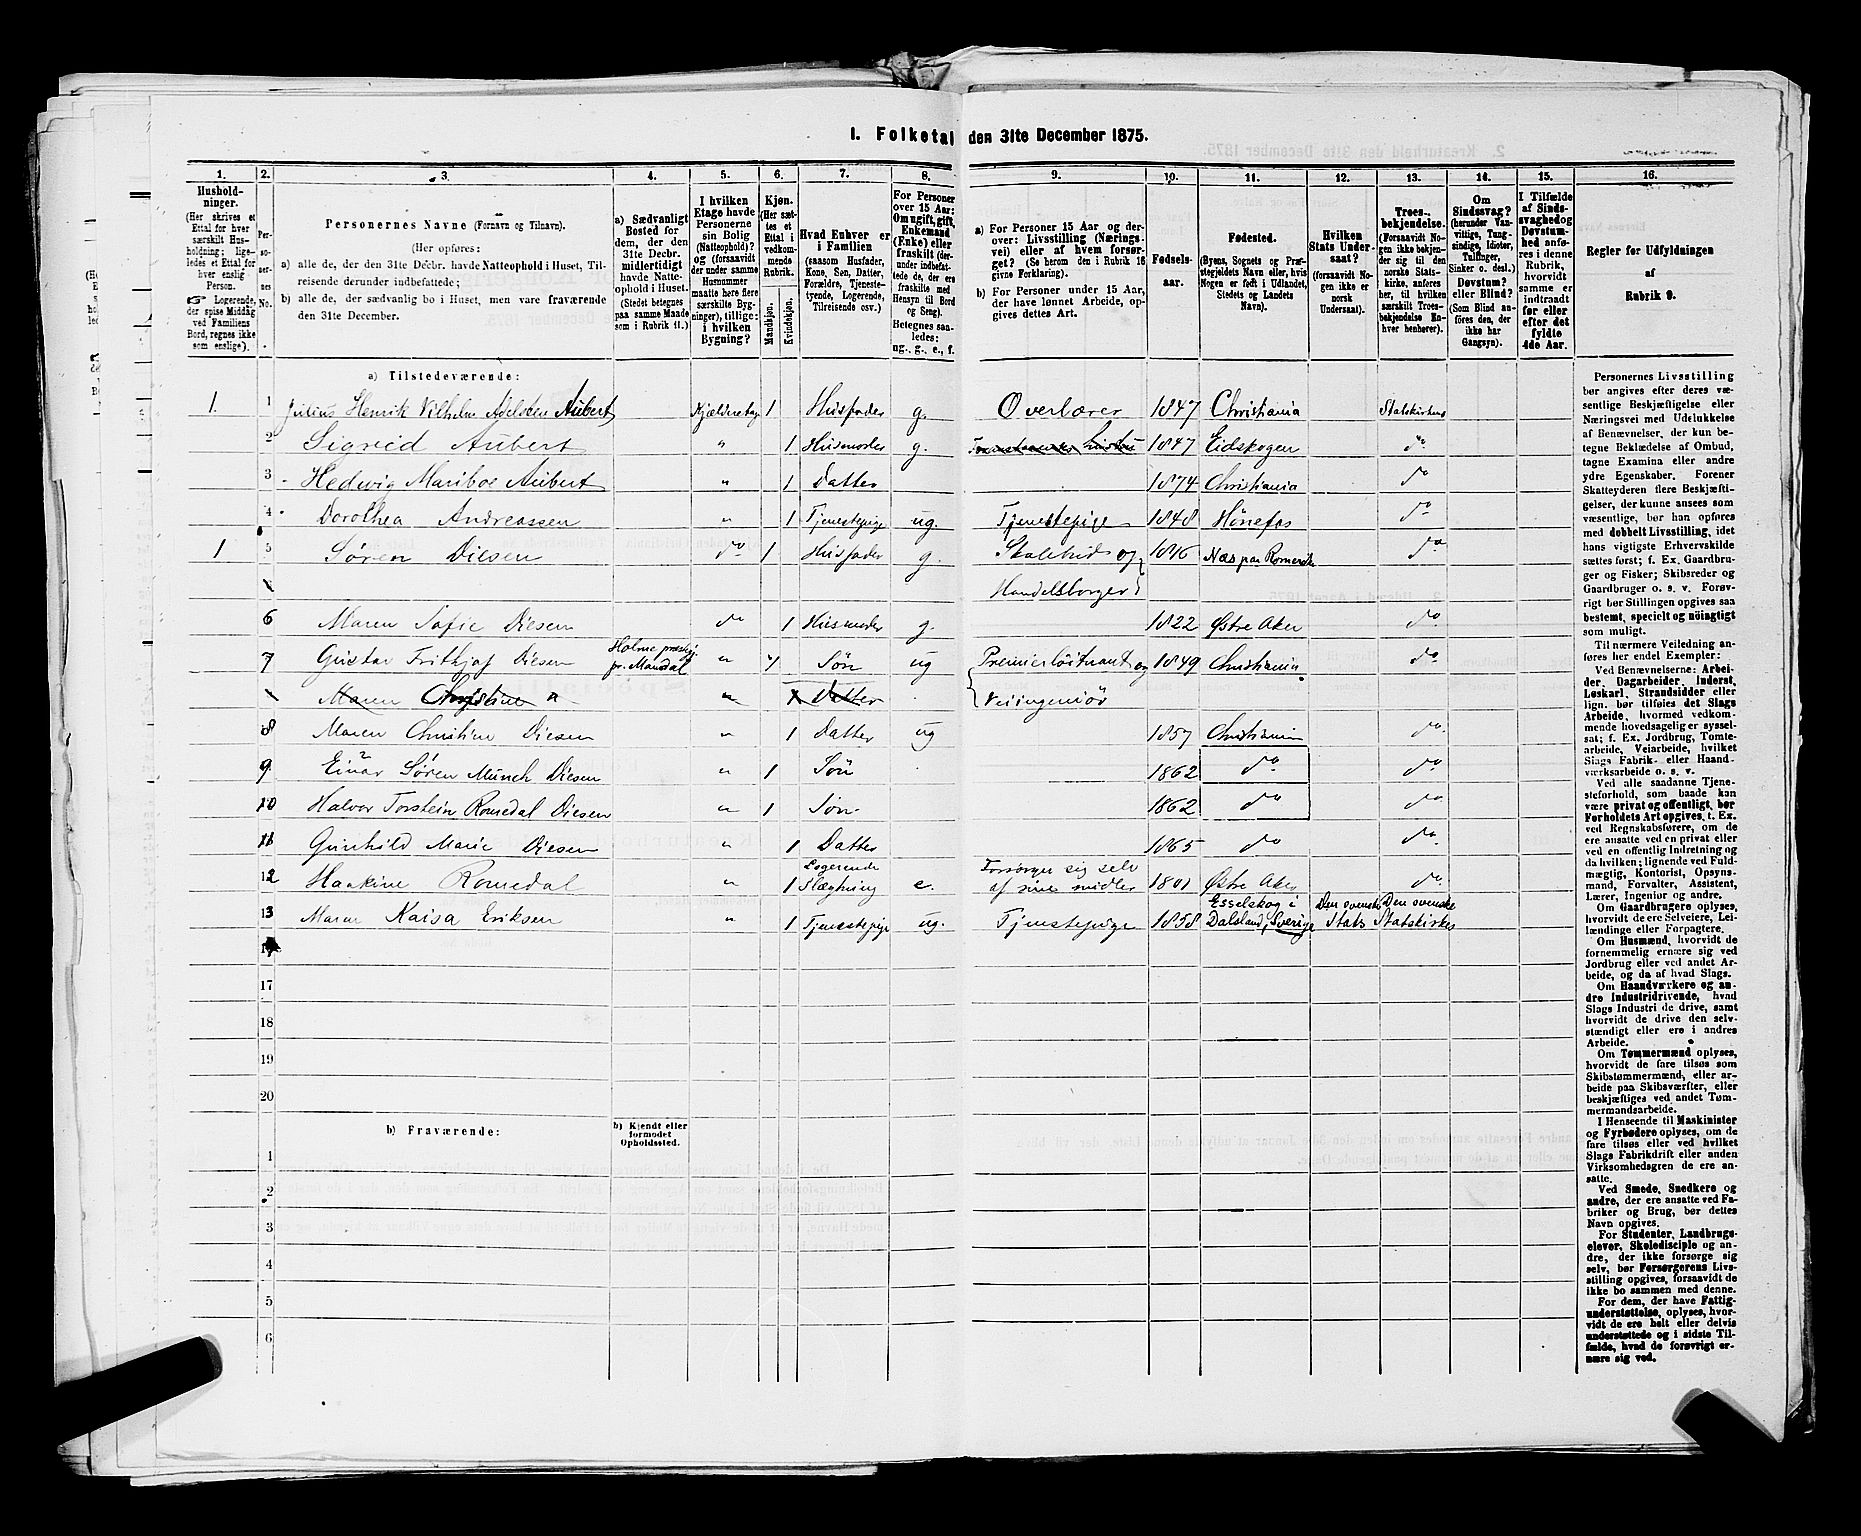 I. Folketal den 31te December 1875.
1. 2. 3. 4. 5. 6. 7. 8. 9. 10. 11. 12. 13. 14. 15. 16.
Husholdninger.
(Her skrives et Ettal for hver særskilt Husholdning; ligeledes et Ettal for hver enslig Person.
☞ Logerende, der spise Middag ved Familiens Bord, regnes ikke som enslige).
Personernes No.
Personernes Navne (Fornavn og Tilnavn).
(Her opføres:
a) alle de, der den 31te Decbr. havde Natteophold i Huset, Tilreisende derunder indbefattede;
b) alle de, der sædvanlig bo i Huset, men vare fraværende den 31te December.
a) Sædvanligt Bosted for dem, der den 31te Decbr. midlertidigt havde Natteophold i Huset.
(Stedet betegnes paa samme Maade som i Rubrik 11.)
I hvilken Etage havde Personerne sin Bolig (Natteophold)? og (forsaavidt der under samme Husnummer maatte høre flere særskilte Bygninger), tillige: i hvilken Bygning?
Kjøn.
(Her sættes et Ettal i vedkommende Rubrik.
Mandkjøn.
Kvindekjøn.
Hvad Enhver er i Familien
(saasom Husfader, Kone, Søn, Datter, Forældre, Tjenestetyende, Logerende, Tilreisende osv.)
For Personer over 15 Aar: Om ugift, gift, Enkemand (Enke) eller fraskilt (derunder indbefattede de, der ere fraskilte med Hensyn til Bord og Seng).
Betegnes saaledes: ug., g., e., f.
a) For Personer 15 Aar og derover: Livsstilling (Næringsvei) eller af hvem forsørget? (Se herom den i Rubrik 16 givne Forklaring).
b) For Personer under 15 Aar, der have lønnet Arbeide, opgives dettes Art.
Fødselsaar.
Fødested.
(Byens, Sognets og Præstegjeldets Navn eller, hvis Nogen er født i Udlandet, Stedets og Landets Navn).
Hvilken Stats Undersaat?
(forsaavidt Nogen ikke er norsk Undersaat).
Troesbekjendelse.
(Forsaavidt Nogen ikke hører sig til den norske Statskirke, anføres her, til hvilken særskilt Troesbekjendelse Enhver henhører).
Om Sindssvag? (herunder Vanvittige, Tungsindige, Idioter, Tullinger, Sinker o. desl.). Døvstum? eller Blind? (Som Blind anføres den, der ikke har Gangsyn).
I Tilfælde af Sindssvaghed og Døvstumhed anføres i denne Rubrik, hvorvidt samme er indtraadt før eller efter det fyldte 4de Aar.
Regler for Udfyldningen af Rubrik 9.
a) Tilstedeværende:
1. 1 Julius Henrik Vilhelm Adelsten Aubert Kjælderetag 1 Husfader g. Overlærer 1847 Christiania Statskirken
2 Sigrid Aubert " 1 Husmoder g. 1847 Eidskogen do
3 Hedwig Mariboe Aubert " 1 Datter 1874 Christiania do
4 Dorothea Andreassen " 1 Tjenestepige ug. Tjenestepige 1848 Hönefos do
1 5 Søren Diesen do 1 Husfader g. og Næs paa Romerike do
Handelsborger
6 Maren Sofie Diesen do 1 Husmoder g. 1822 Østre Aker do
7 Gustav Frithjof Diesen Holme præstgj. pr. Mandal " Søn ug Premierløitnant og 1849 Christiania do
Maren Christine " " 1 Datter Veiingeniör
8 Maren Christine Diesen " 1 Datter ug 1857 Christiania do
9. Einar Søren Münch Diesen " 1 Søn 1862 do do
10 Halvor Torstein Romedal Diesen " 1 Søn 1862 do do
11 Gunhild Marie Diesen " 1 Datter 1865 do do
12 Haakine Romedal " 1 Logerende Slægtning e. Forsørger sig selv af sine midler 1801 Østre Aker do
13 Maren Kaisa Eriksen " 1 Tjenestepige ug. Tjenestepige 1858 Esselskog i Dalsland, Sverige Den svenske Stats Den svenske Statskirke
17
18
19
20
b) Fraværende:
b) Kjendt eller formodet Opholdssted.
1
2
3
4
5
6
Personernes Livsstilling bør angives efter deres væsentlige Beskjæftigelse eller Næringsvei med Udelukkelse af Benævnelser, der kun betegne Beklædelse af Ombud, tagne Examina eller andre ydre Egenskaber. Forener Skatteyderen flere Beskjæftigelser, der kunne ansees som væsentlige, bør han opføres med dobbelt Livsstilling, idet hans vigtigste Erhvervskilde sættes først; f. Ex. Gaardbruger og Fisker; Skibsreder og Gaardbruger o. s. v. Forøvrigt bør Stillingen opgives saa bestemt, specielt og nøiagtigt som muligt.
Til nærmere Veiledning anføres her endel Exempler:
Ved Benævnelserne: Arbeider, Dagarbeider, Inderst, Løskarl, Strandsidder eller lign. bør tilføies det Slags Arbeide, hvormed vedkommende hovedsagelig er sysselsat; f. Ex. Jordbrug, Tomtearbeide, Veiarbeide, hvilket Slags Fabrik- eller Haandværksarbeide o. s. v.
Ved alle saadanne Tjenesteforhold, som baade kan være privat og offentligt, bør Forholdets Art opgives, t. Ex. ved Regnskabsførere, om de ere ansatte ved en privat eller ved en offentlig Indretning og da hvilken; lignende ved Fuldmægtig, Kontorist, Opsynsmand, Forvalter, Assistent, Lærer, Ingeniør og andre.
Om Gaardbrugere oplyses, hvorvidt de ere Selveiere, Leilændinge eller Forpagtere.
Om Husmænd, hvorvidt de fornemmelig ernære sig ved Jordbrug eller ved andet Arbeide, og da af hvad Slags.
Om Haandværkere og andre Industridrivende, hvad Slags Industri de drive, samt hvorvidt de drive den selvstændigt eller ere i andres Arbeide.
Om Tømmermænd oplyses, hvorvidt de fare tilsøs som Skibstømmermænd, eller arbeide paa Skibsværfter, eller beskjæftiges ved andet Tømmermandsarbeide.
I Henseende til Maskinister og Fyrbødere oplyses, om de fare tilsøs eller ved hvilket Slags Fabrikdrift eller anden Virksomhedsgren de ere ansatte.
Ved Smede, Snedkere og andre, der ere ansatte ved Fabriker og Brug, bør dettes Navn opgives.
For Studenter, Landbrugselever, Skoledisciple og andre, der ikke forsørge sig selv, bør Forsørgerens Livsstilling opgives, forsaavidt de ikke bo sammen med denne.
For dem, der have Fattigunderstøttelse, oplyses, hvorvidt de ere helt eller delvis understøttede og i sidste Tilfælde, hvad de forøvrigt ernære sig ved.